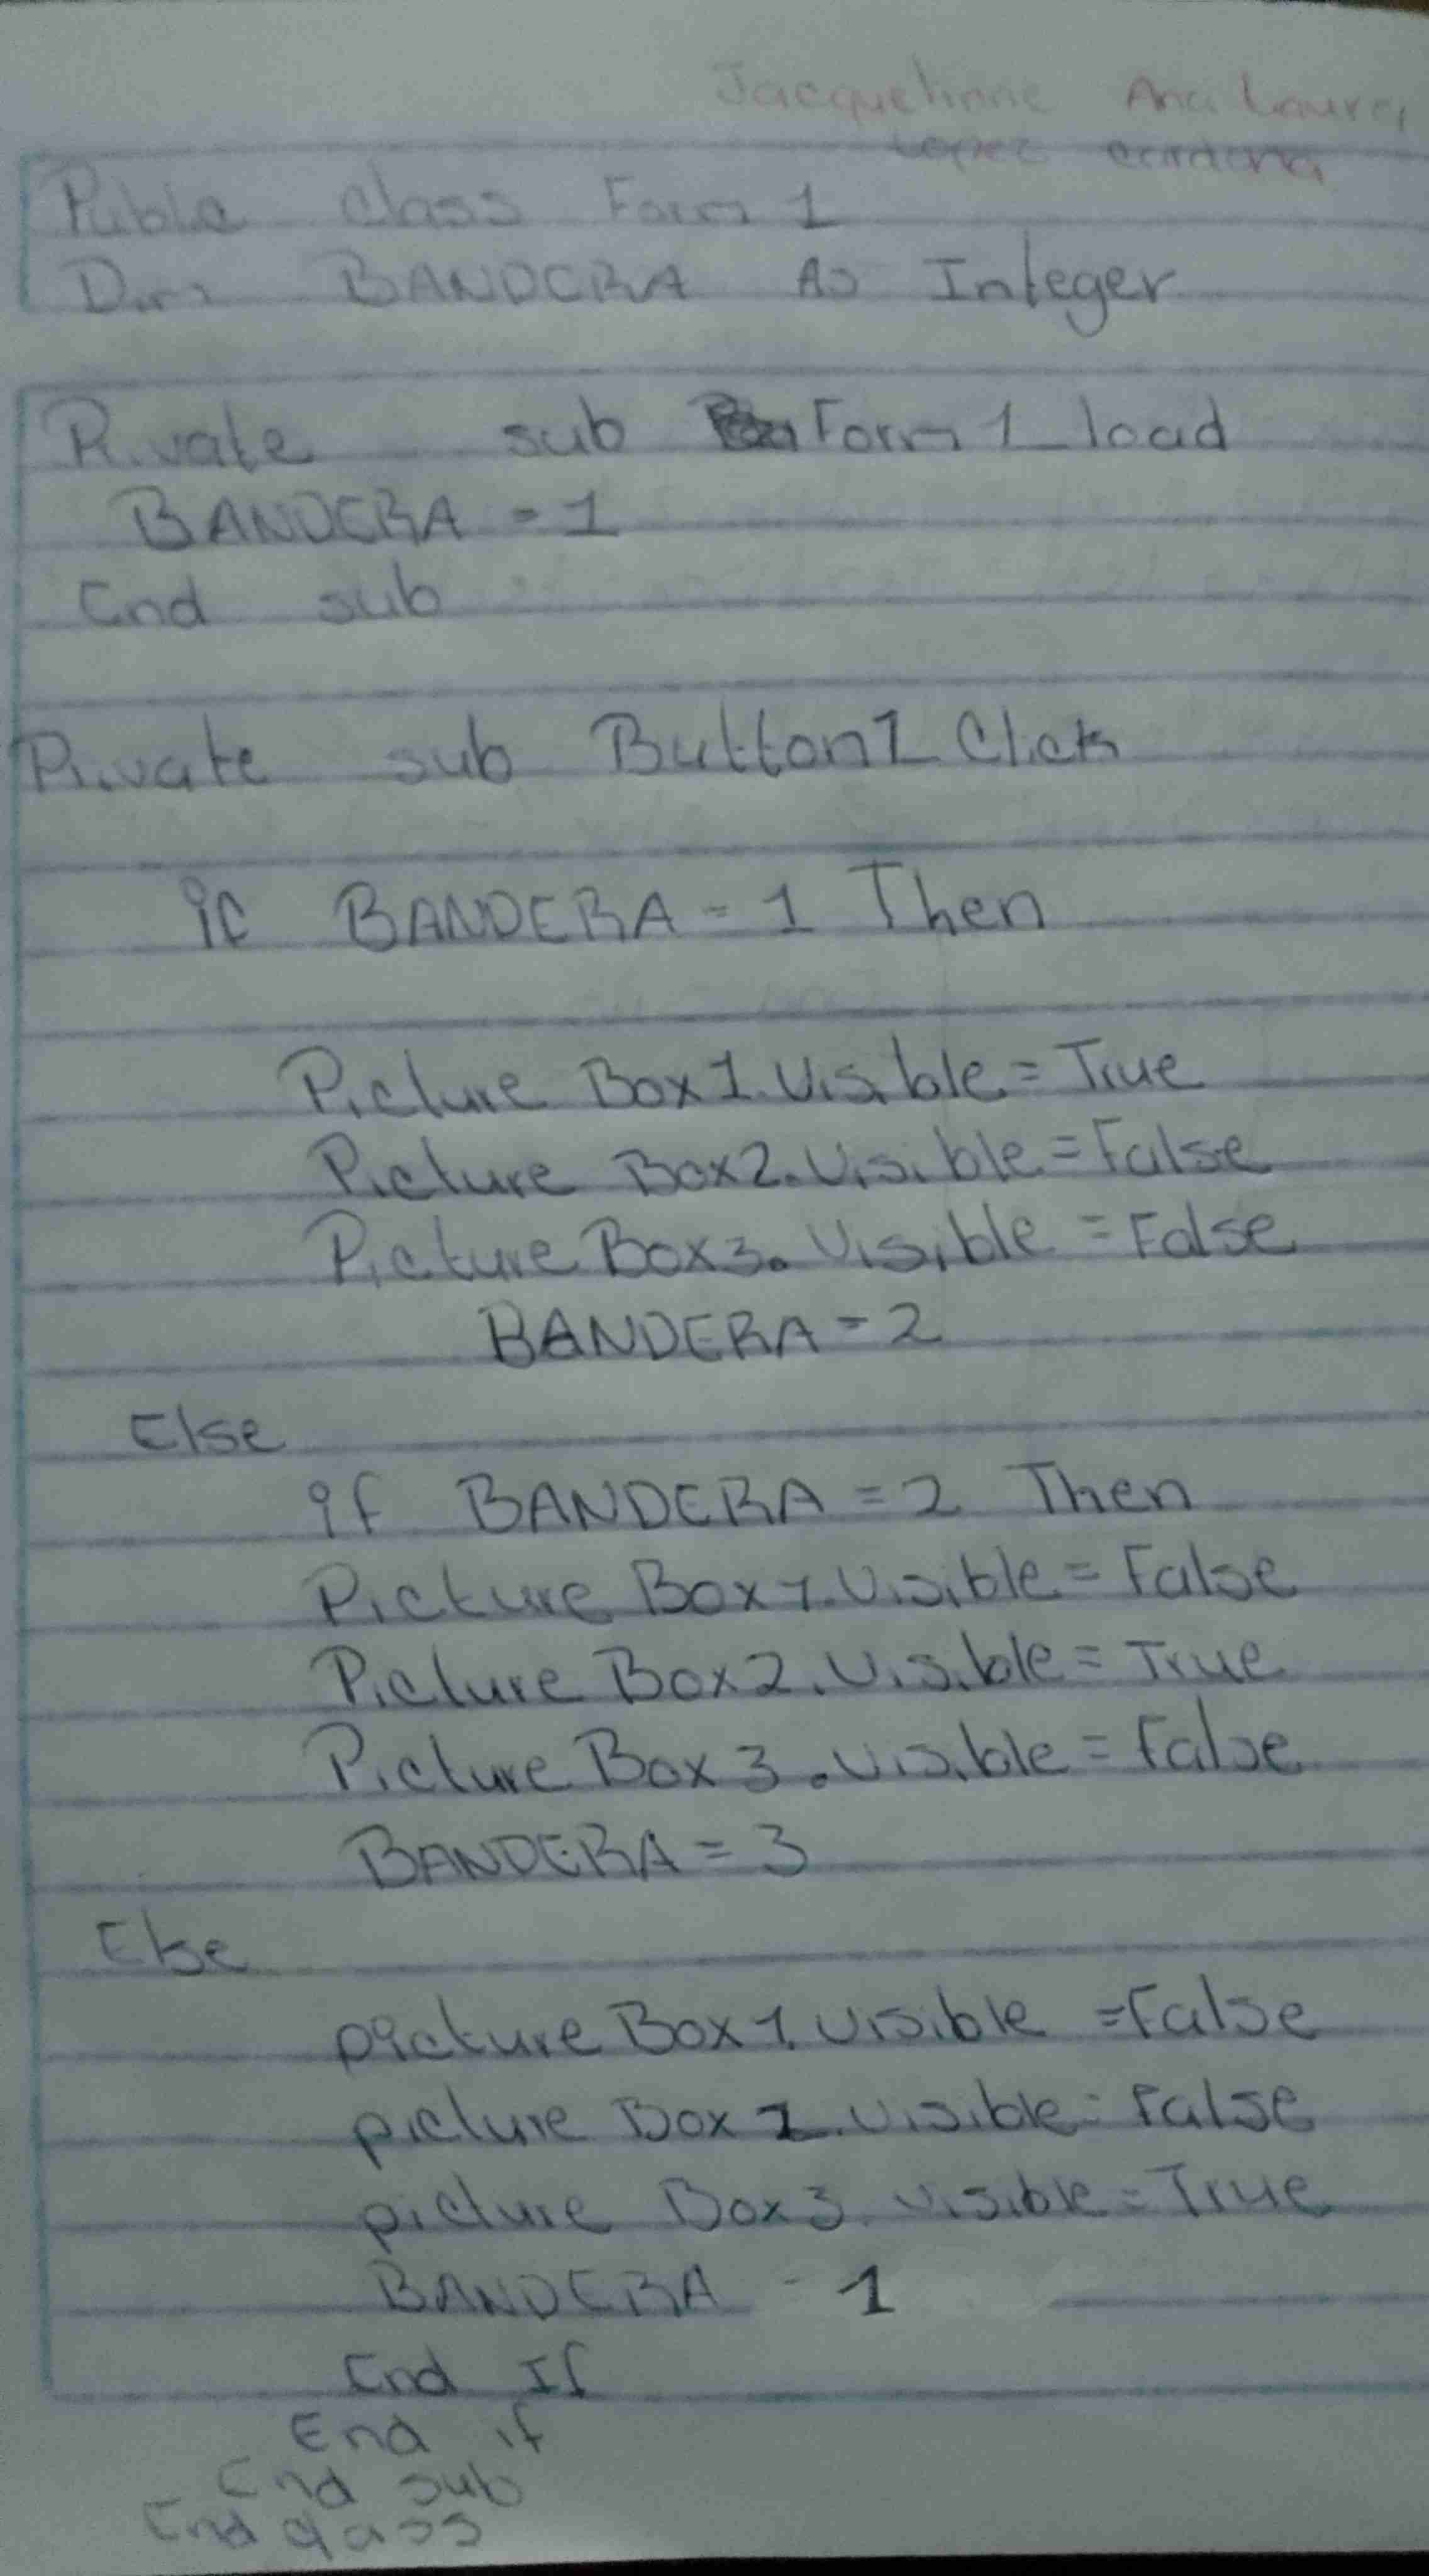 Jacqueline Ana Laura
Lopez cardona
Public class Form 1
Dim BANDERA As Integer
Private sub Form 1_load
BANDERA = 1
End sub
Private sub Button1 Click
if BANDERA = 1 Then
Picture Box1.Visible = True
Picture Box2.Visible = False
Picture Box3.Visible = False
BANDERA = 2
Else
if BANDERA = 2 Then
Picture Box1.Visible = False
Picture Box2.Visible = True
Picture Box3.Visible = False
BANDERA = 3
Else
picture Box1.visible = False
picture Box 2.visible = False
picture Box3.visible = True
BANDERA - 1
End If
End if
End sub
End class